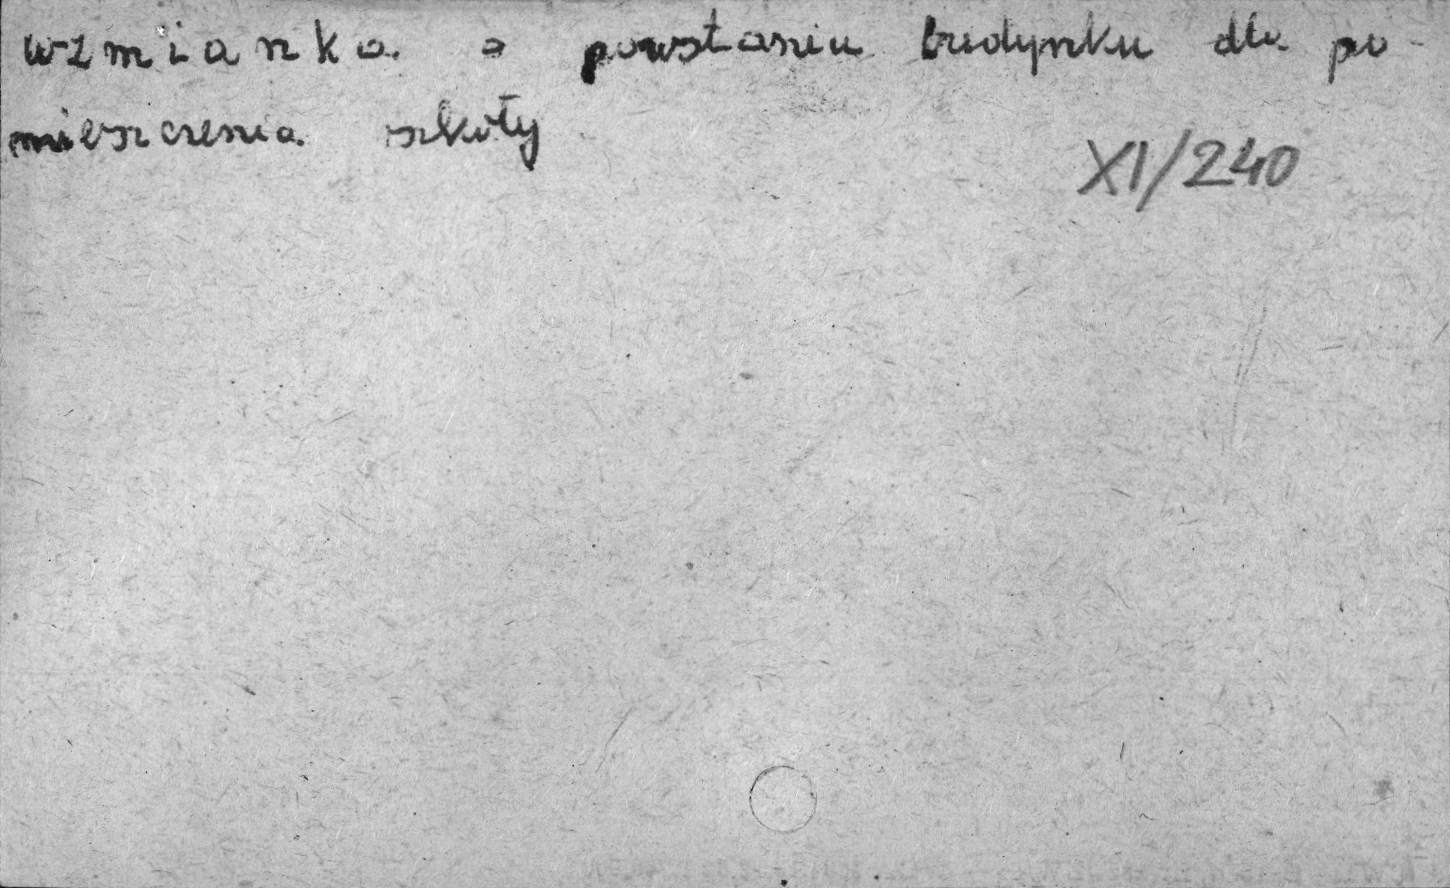 wzmianka o powstaniu budynku dla po-
mieszczenia szkoły
XI/240